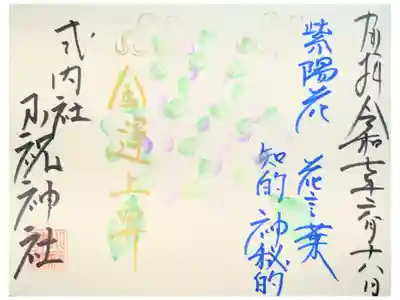 奉拝 令和七年六月十八日
紫陽花 花言葉
知的 神秘的
金運上昇
式内社
祝神社